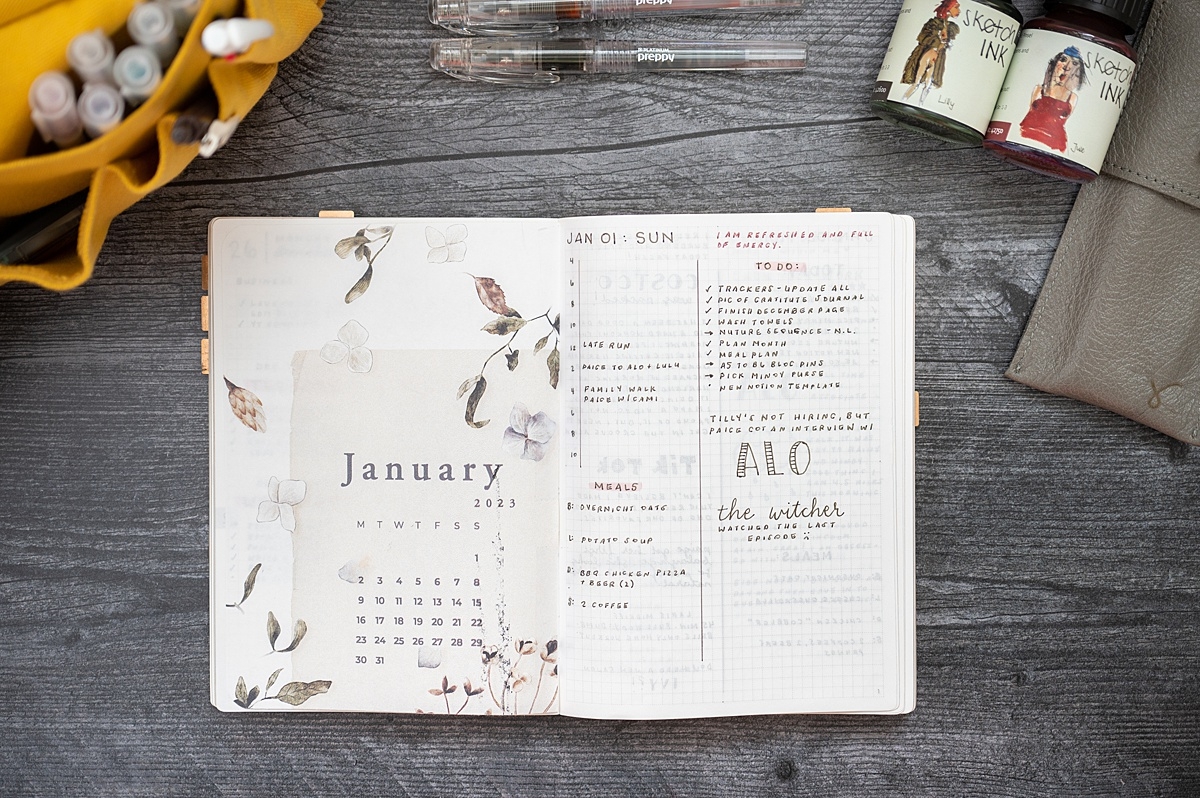 PLATINUM
preppy
PLATINUM
preppy
SKETCH
INK
Lilly
SKETCH
INK
Jule
January
2023
M T W T F S S
1
2 3 4 5 6 7 8
9 10 11 12 13 14 15
16 17 18 19 20 21 22
23 24 25 26 27 28 29
30 31
JAN 01 : SUN
4
6
8
10
12 LATE RUN
2 PAIGE TO ALO + LULU
4 FAMILY WALK
PAIGE W/ CAMI
6
8
10
MEALS
B: OVERNIGHT OATS
L: POTATO SOUP
D: BBQ CHICKEN PIZZA
+ BEER (2)
S: 2 COFFEE
I AM REFRESHED AND FULL
OF ENERGY.
TO DO:
✓ TRACKERS - UPDATE ALL
✓ PIC OF GRATITUTE JOURNAL
✓ FINISH DECEMBER PAGE
✓ WASH TOWELS
→ NUTURE SEQUENCE - N.L.
✓ PLAN MONTH
✓ MEAL PLAN
→ A5 TO B6 BLOG PINS
→ PICK MINDY PURSE
• NEW NOTION TEMPLATE
TILLY'S NOT HIRING, BUT
PAIGE GOT AN INTERVIEW W/
ALO
the witcher
WATCHED THE LAST
EPISODE :(
1